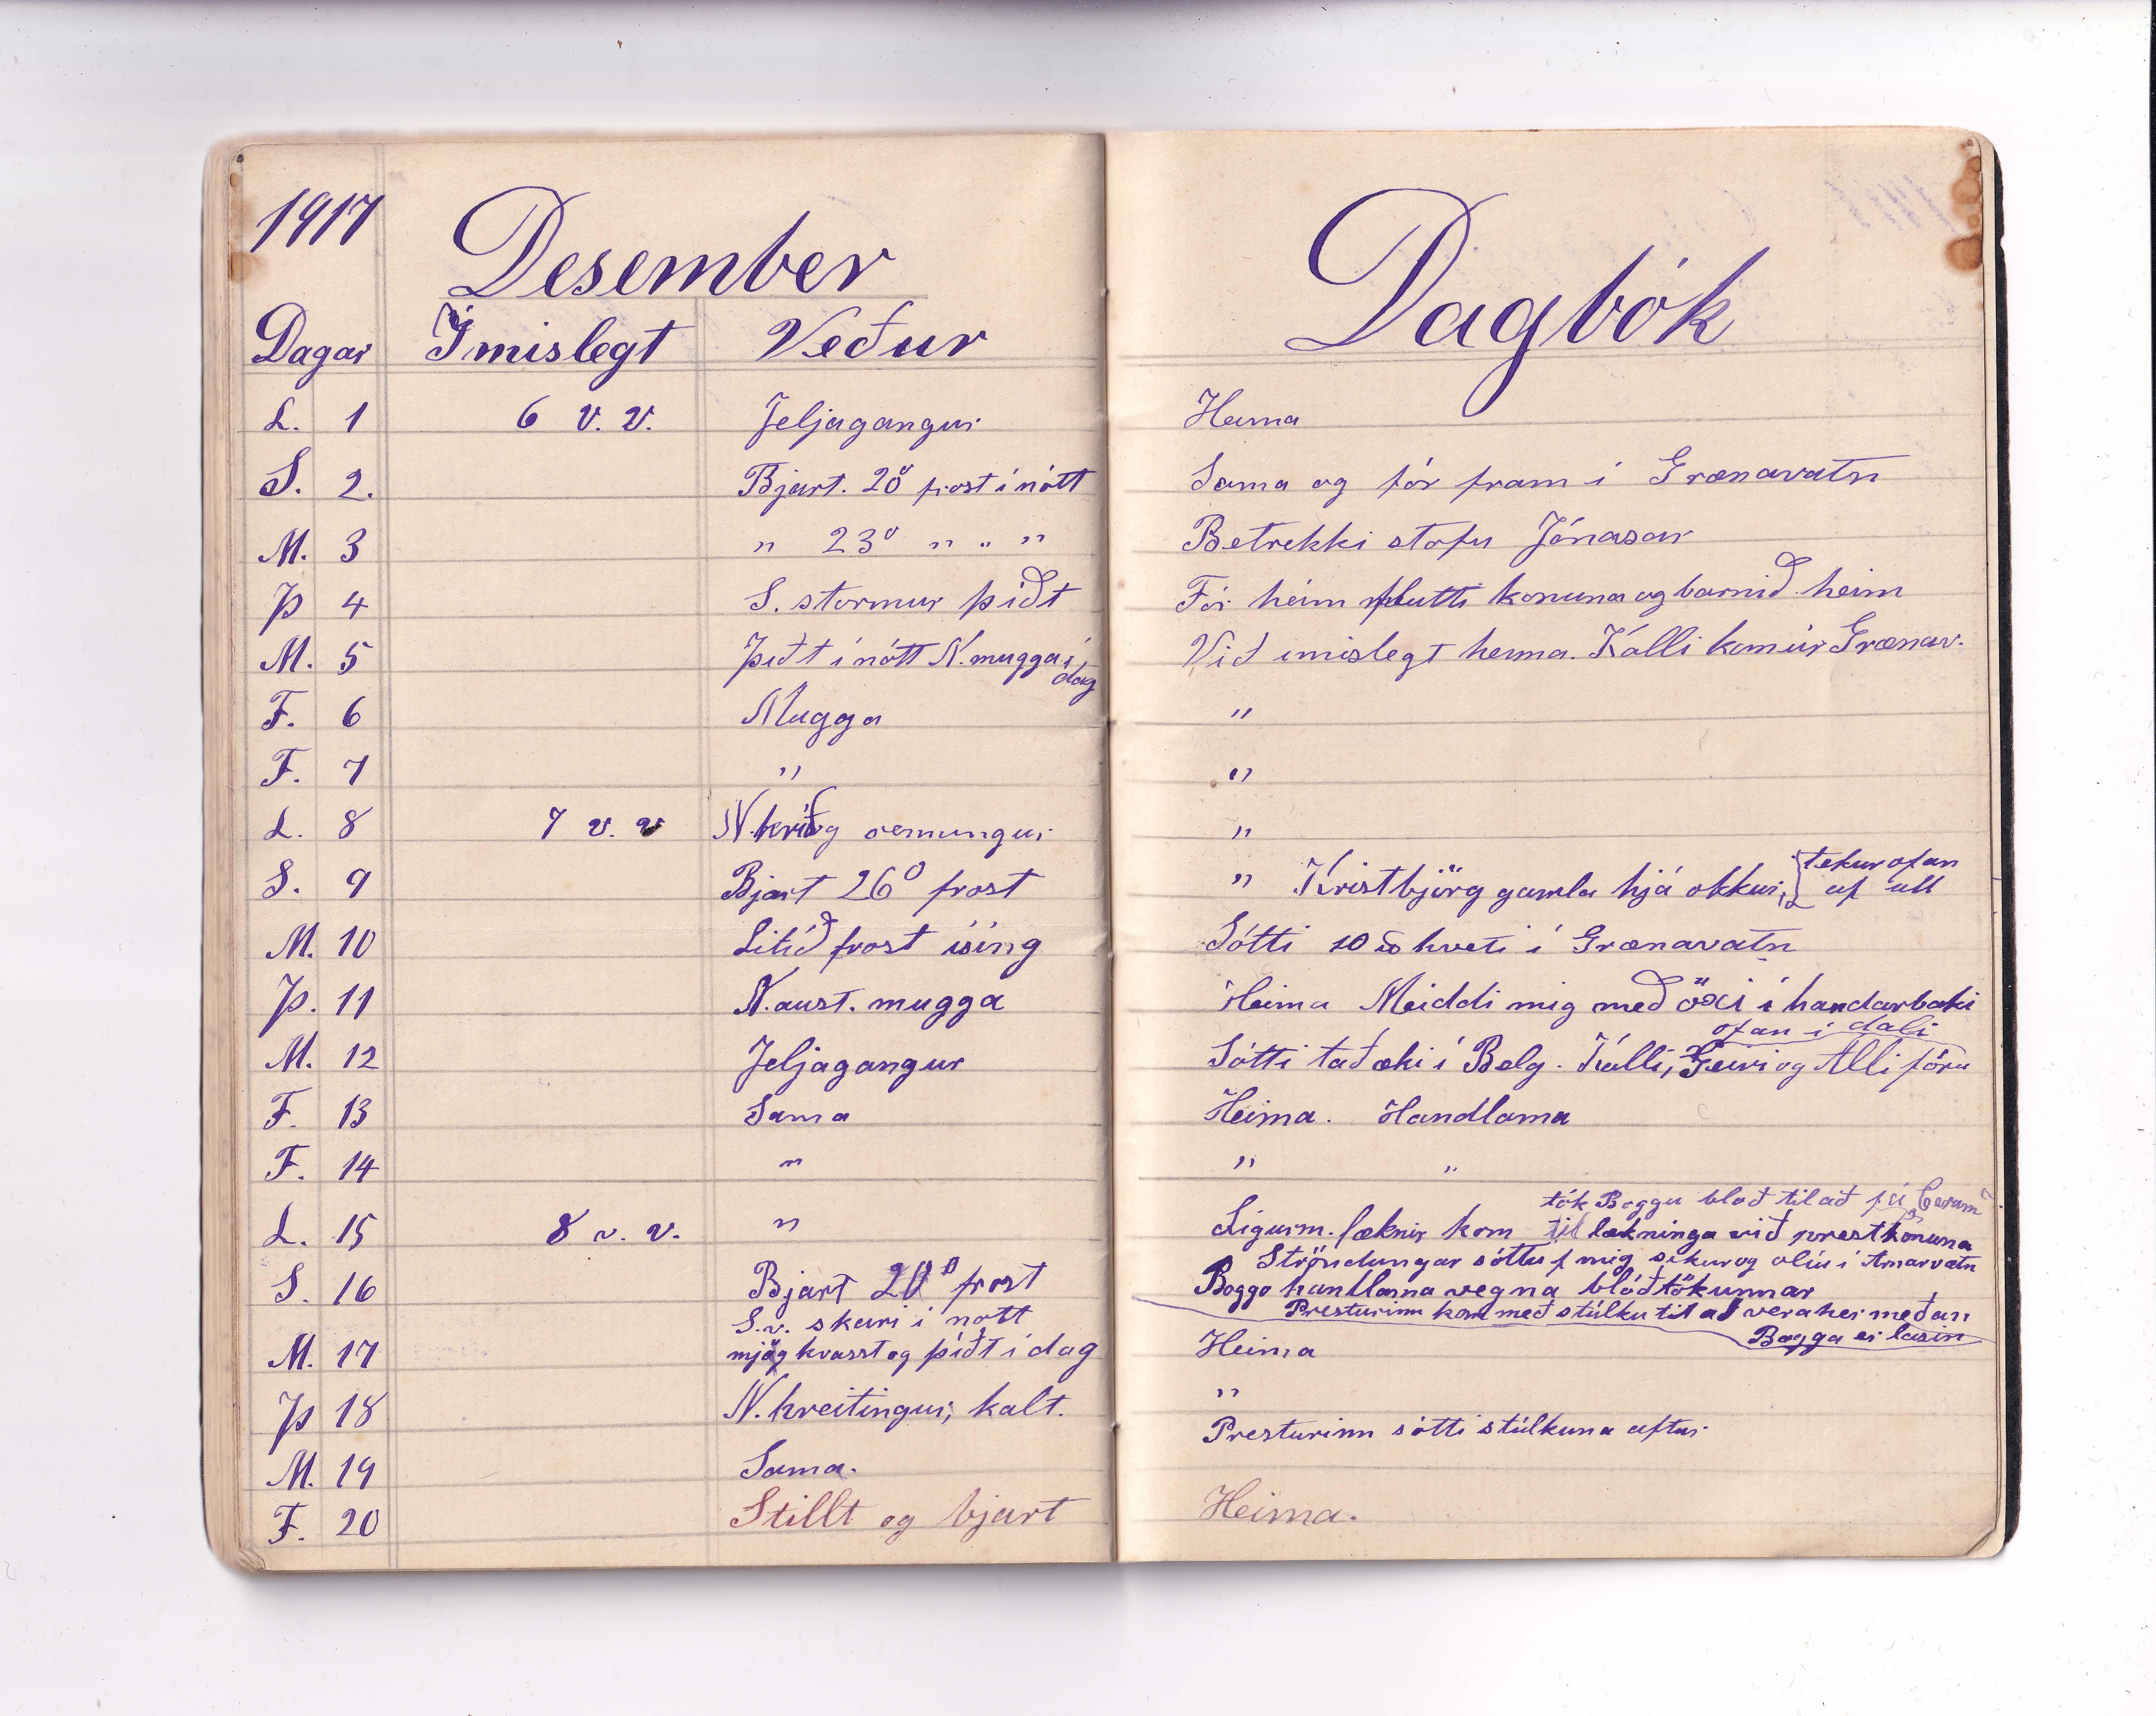 1917
Desember
Dagbók
Dagar Ímislegt Veður
L. 1 6 v. v. Jeljagangur Heima
S. 2. Bjart. 20° frost í nótt Sama og fór fram í Grænavatn
M. 3 " 23° " " " Betrekki stofu Jónasar
Þ 4 S. stormur þiðt Fór heim flutti konuna og barnið heim
M. 5 Þiðt í nótt N. mugga í Við imislegt heima. Kalli kom úr Grænav.
dag
F. 6 Mugga "
F. 7 " "
L. 8 7 v. v N. hríð og "
S. 9 Bjart 26° frost " Kristbjörg gamla hjá okkur, tekur ofan
af ull
M. 10 Litið frost ísing Sótti 10 hveti í Grænavatn
Þ. 11 N. aust. mugga Heima Meiddi mig með öxi í handarbaki
ofan í dali
M. 12 Jeljagangur Sótti taðæki í Belg. Kalli, Geiri og Alli fóru
F. 13 Sama Heima. Handlama
F. 14 " " "
tók Boggu bloð til að fá
L. 15 8 v. v. " Sigurm. læknir kom til lækninga við prestkonuna
Ströndungar sóttu f mig sikur og olíu í Arnarvatn
S. 16 Bjart 20° frost Bogga handlama vegna blóðtökunnar
Presturinn kom með stúlku til að vera her meðan
Bogga er lasin
S.v. skúri í nott
M. 17 mjög kvasst og þiðt í dag Heima
Þ 18 N. hreitingur, kalt. "
M. 19 Sama. Presturinn sótti stúlkuna aftur
F. 20 Stillt og bjart Heima.